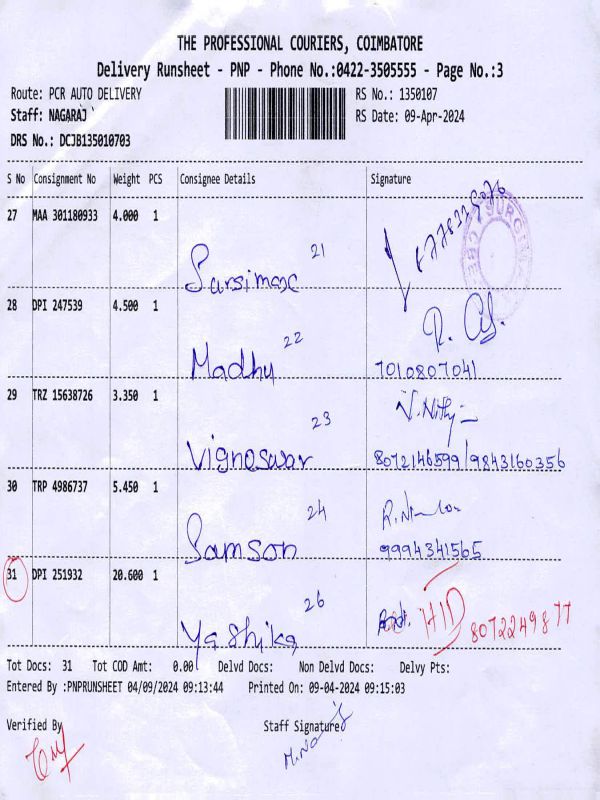 THE PROFESSIONAL COURIERS, COIMBATORE
Delivery Runsheet - PNP - Phone No.:0422-3505555 - Page No.:3
Route: PCR AUTO DELIVERY RS No.: 1350107
Staff: NAGARAJ RS Date: 09-Apr-2024
DRS No.: DCJB135010703
S No Consignment No Weight PCS Consignee Details Signature
27 MAA 301180933 4.000 1
21
Sursimac
28 DPI 247539 4.500 1
22
Madhu 7010807041
29 TRZ 15638726 3.350 1 V.Nithy
23
Vignoswar 8072146599/9843160356
30 TRP 4986737 5.450 1
24
Samson 9994341565
31 DPI 251932 20.600 1
26
Yashika HID 8072249877
Tot Docs: 31 Tot COD Amt: 0.00 Delvd Docs: Non Delvd Docs: Delvy Pts:
Entered By :PNPRUNSHEET 04/09/2024 09:13:44 Printed On: 09-04-2024 09:15:03
Verified By Staff Signature